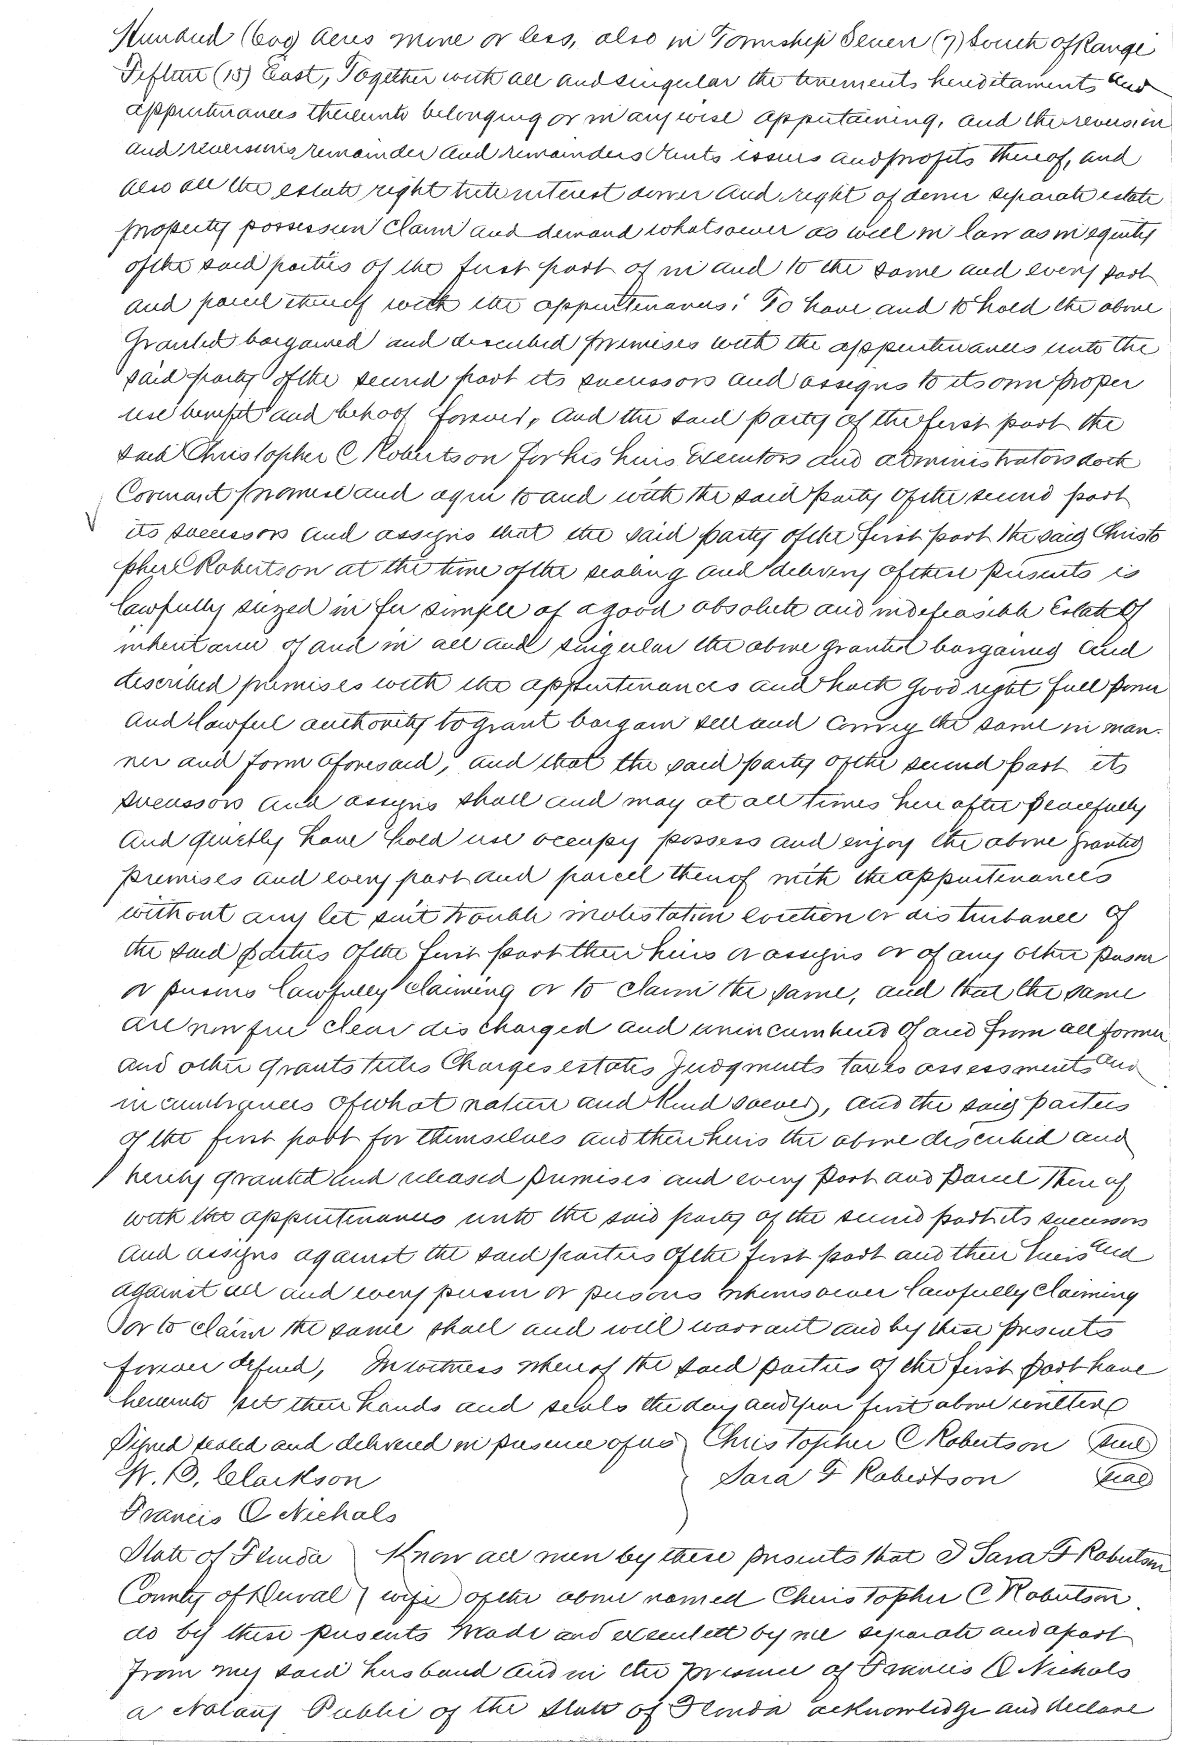 Hundred (600) Acres more or less, also in Township Seven (7) South of Range
Fifteen (15) East, Together with all and singular the tenements hereditaments and
appurtenances thereunto belonging or in anywise appertaining, and the reversion
and reversions remainder and remainders rents issues and profits thereof, and
also all the estate right title interest dower and right of dower separate estate
property possession claim and demand whatsoever as well in law as in equity
of the said parties of the first part of in and to the same and every part
and parcel thereof with the appurtenances: To have and to hold the above
granted bargained and described premises with the appurtenances unto the
said party of the second part its successors and assigns to its own proper
use benefit and behoof forever, and the said party of the first part the
said Christopher C Robertson for his heirs Executors and administrators doth
Covenant promise and agree to and with the said party of the second part
its successors and assigns that the said party of the first part the said Christo
pher C Robertson at the time of the sealing and delivery of these presents is
lawfully seized in fee simple of a good absolute and indefeasible Estate of
inheritance of and in all and singular the above granted bargained and
described premises with the appurtenances and hath good right full power
and lawful authority to grant bargain sell and convey the same in man-
ner and form aforesaid, and that the said party of the second part its
successors and assigns shall and may at all times here after peacefully
and quietly have hold use occupy possess and enjoy the above granted
premises and every part and parcel thereof with the appurtenances
without any let suit trouble molestation eviction or disturbance of
the said parties of the first part their heirs or assigns or of any other person
or persons lawfully claiming or to claim the same, and that the same
are now free clear discharged and unincumbered of and from all former
and other grants titles Charges estates Judgments taxes assessments and
incumbrances of what nature and Kind soever, and the said parties
of the first part for themselves and their heirs the above described and
hereby granted and released premises and every part and parcel there of
with the appurtenances unto the said party of the second part its successors
and assigns against the said parties of the first part and their heirs and
against all and every person or persons whomsoever lawfully claiming
or to claim the same shall and will warrant and by these presents
forever defend, In witness whereof the said parties of the first part have
hereunto set their hands and seals the day and year first above written
Signed sealed and delivered in presence of us Christopher C Robertson (seal)
W. B. Clarkson Sara F Robertson (seal)
Francis Q Nichols
State of Florida Know all men by these presents that I Sara F Robertson
County of Duval wife of the above named Christopher C Robertson
do by these presents made and executed by me separate and apart
from my said husband and in the presence of Francis Q Nichols
a Notary Public of the State of Florida acknowledge and declare